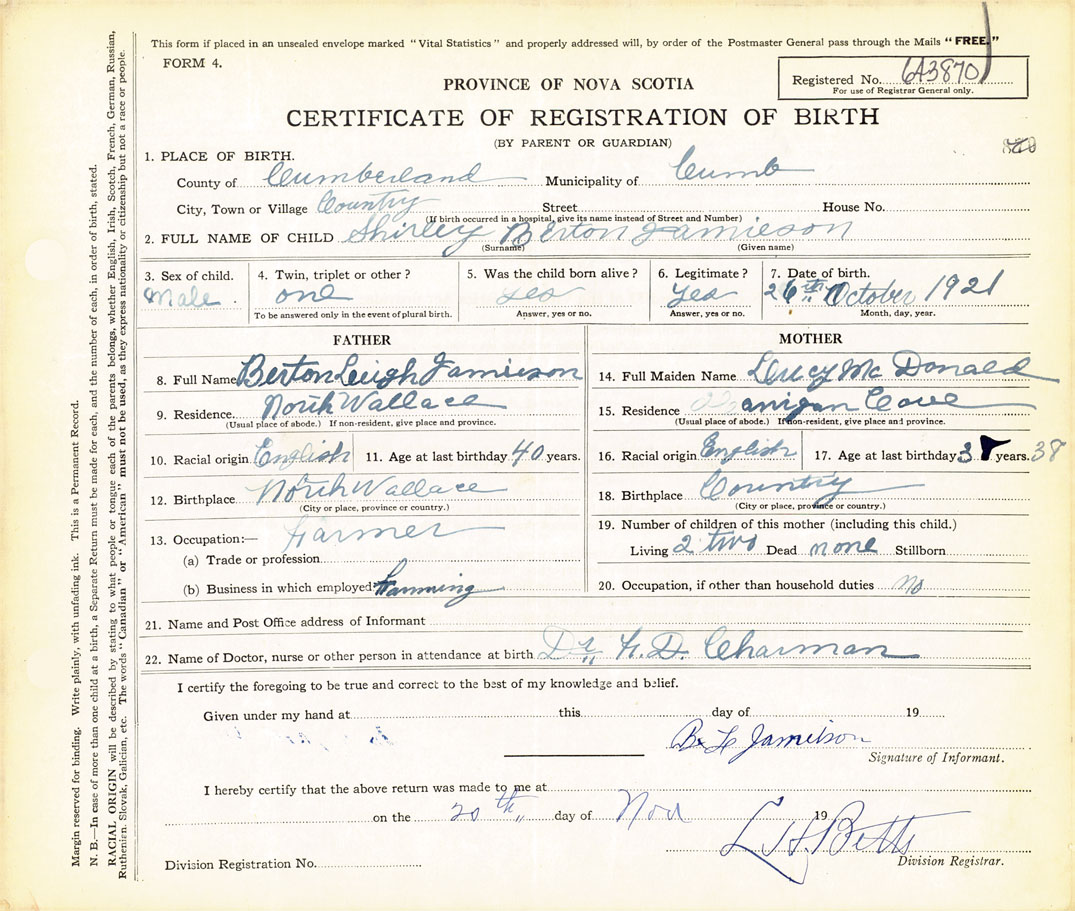 This form if placed in an unsealed envelope marked "Vital Statistics" and properly addressed will, by order of the Postmaster General pass through the Mails "FREE."
FORM 4.
Registered No. 643870
For use of Registrar General only.
PROVINCE OF NOVA SCOTIA
CERTIFICATE OF REGISTRATION OF BIRTH
(BY PARENT OR GUARDIAN)
1. PLACE OF BIRTH.
County of Cumberland Municipality of Cumb
City, Town or Village Country Street House No.
(If birth occurred in a hospital, give its name instead of Street and Number)
2. FULL NAME OF CHILD Shirley Berton Jamieson
(Surname) (Given name)
3. Sex of child. 4. Twin, triplet or other? 5. Was the child born alive? 6. Legitimate? 7. Date of birth.
Male one yes yes 26th October 1921
To be answered only in the event of plural birth. Answer, yes or no. Answer, yes or no. Month, day, year.
FATHER
8. Full Name Berton Leigh Jamieson
9. Residence. North Wallace
(Usual place of abode.) If non-resident, give place and province.
10. Racial origin English 11. Age at last birthday 40 years.
12. Birthplace North Wallace
(City or place, province or country.)
13. Occupation:— Farmer
(a) Trade or profession
(b) Business in which employed Farming
MOTHER
14. Full Maiden Name Lucy Mc Donald
15. Residence Cove
(Usual place of abode.) If non-resident, give place and province.
16. Racial origin English 17. Age at last birthday years. 38
18. Birthplace Country
(City or place, province or country.)
19. Number of children of this mother (including this child.)
Living 2 two Dead none Stillborn
20. Occupation, if other than household duties No
21. Name and Post Office address of Informant
22. Name of Doctor, nurse or other person in attendance at birth Dr. Charman
I certify the foregoing to be true and correct to the best of my knowledge and belief.
Given under my hand at this day of 19
B L Jamieson
Signature of Informant.
I hereby certify that the above return was made to me at
on the 20th day of Nov 19
L H. Betts
Division Registrar.
Division Registration No.
Margin reserved for binding. Write plainly, with unfading ink. This is a Permanent Record.
N. B.—In case of more than one child at a birth, a Separate Return must be made for each, and the number of each, in order of birth, stated.
RACIAL ORIGIN will be described by stating to what people or tongue each of the parents belongs, whether English, Irish, Scotch, French, German, Russian,
Ruthenian, Slovak, Galician, etc. The words "Canadian" or "American" must not be used, as they express nationality or citizenship but not a race or people.